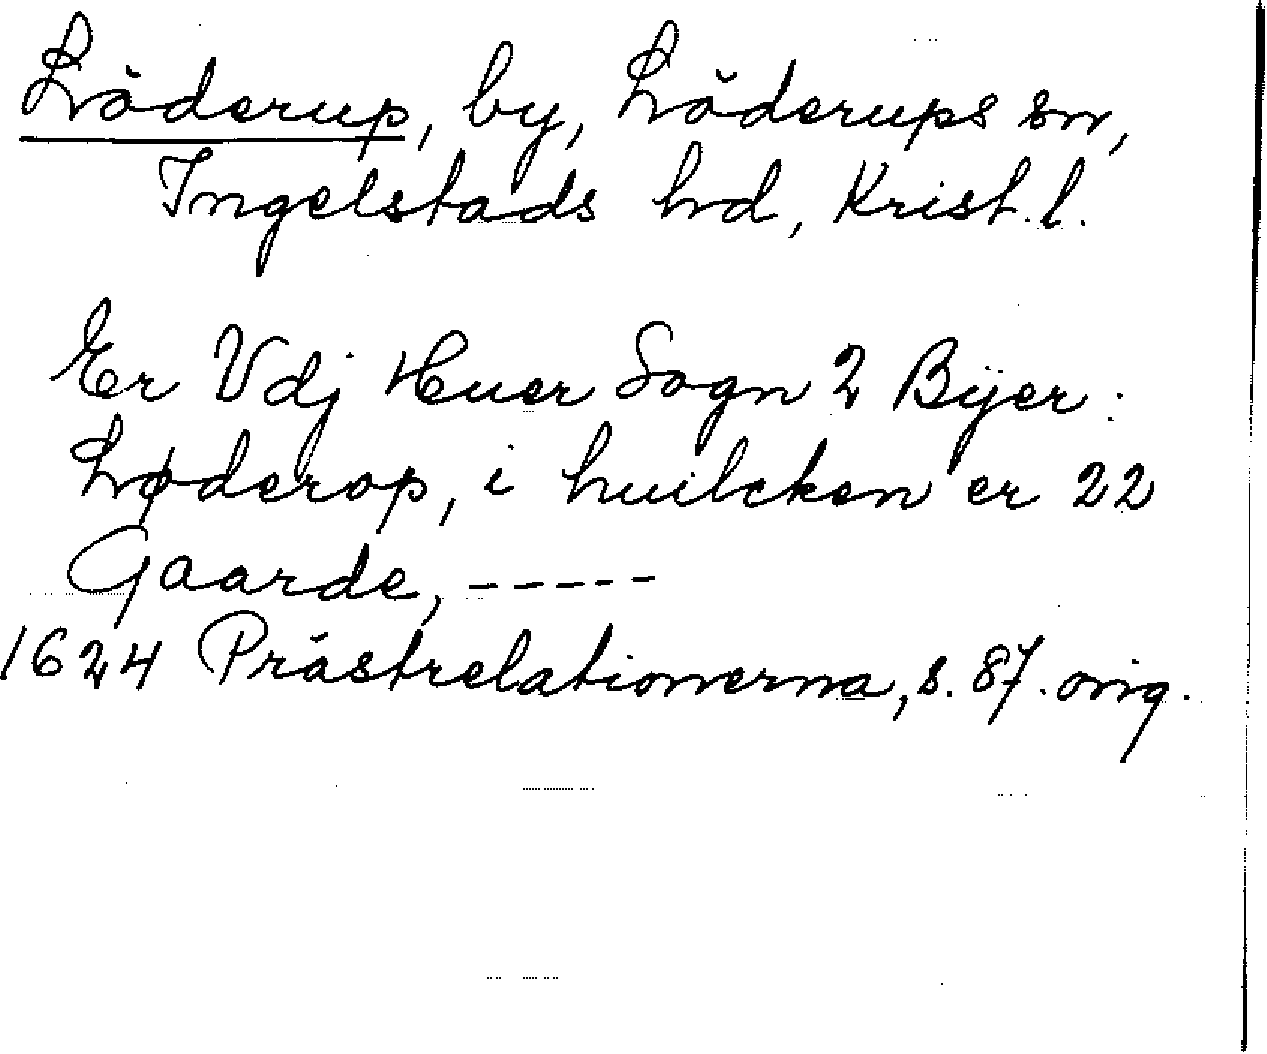 Löderup, by, Löderups sn,
Ingelstads hd, Krist. l.
Er Vdj Huer Sogn 2 Bÿer:
Løderop, i huilcken er 22
Gaarde, -----
1624 Prästrelationerna, s. 87. orig.